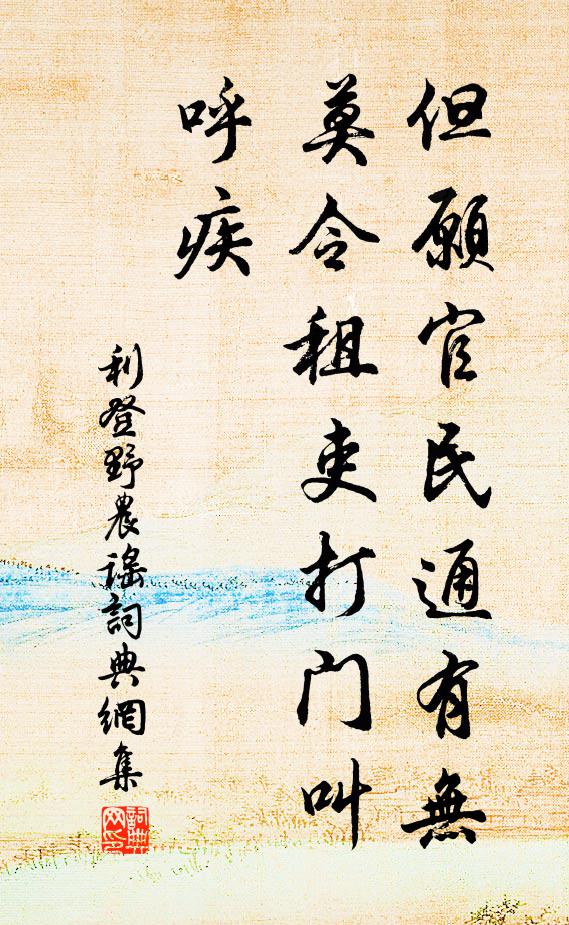 但願官民通有無
莫令租吏打门叫
呼疾
利登野農謠詞典網集
詞典网印